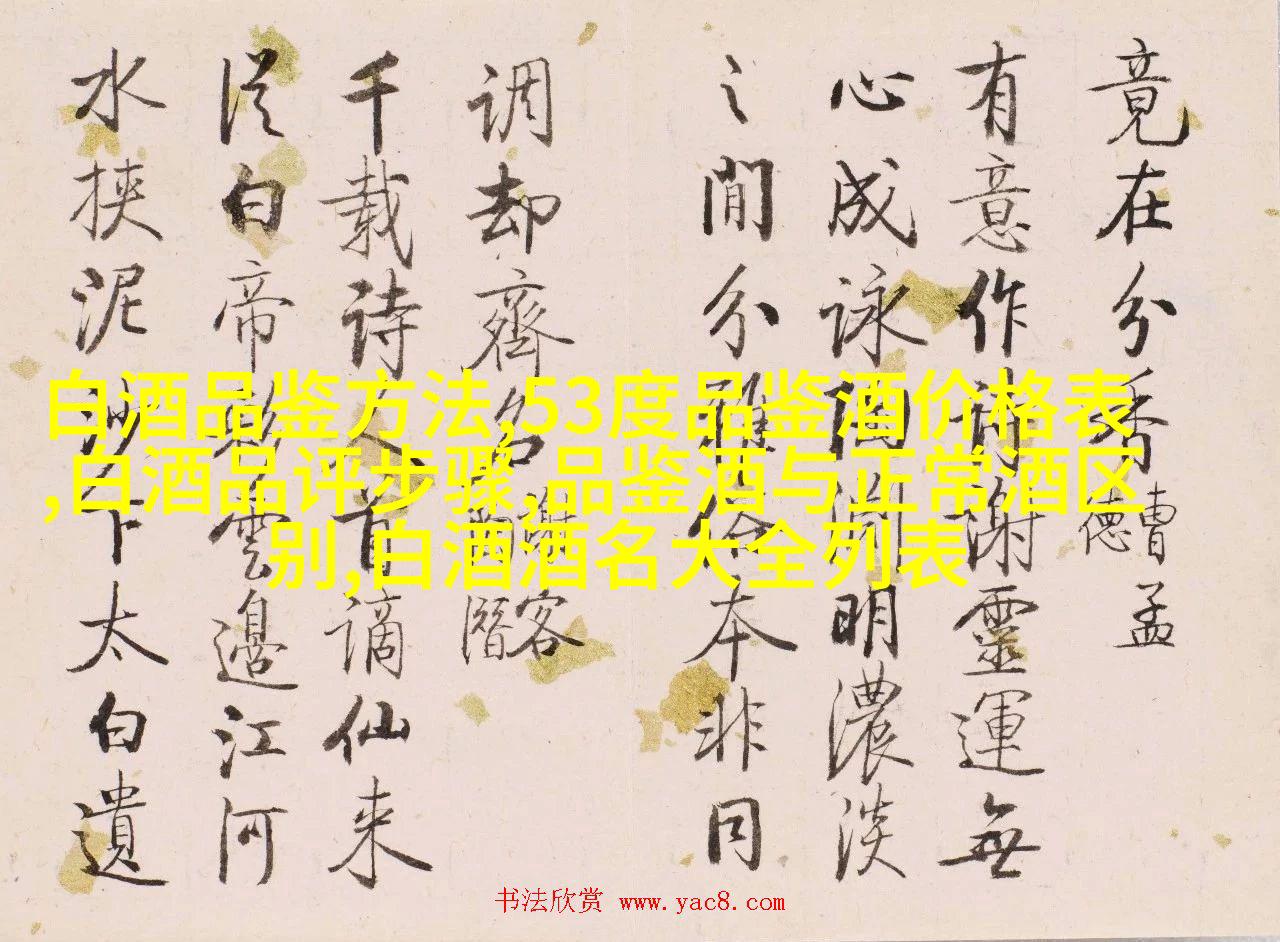 竟在分香曹孟德
有意作詩謝靈運無
心成詠陶淵明濃淡
之間分雅俗本非同
調却齊名謝客陶潛
千載詩人首謫仙来
從白帝彩雲邊江河
水挟泥沙下太白遺
白酒品鉴方法,53度品鉴酒价格表
,白酒品评步骤,品鉴酒与正常酒区
别,白酒酒名大全列表
书法欣赏 www.yac8.com